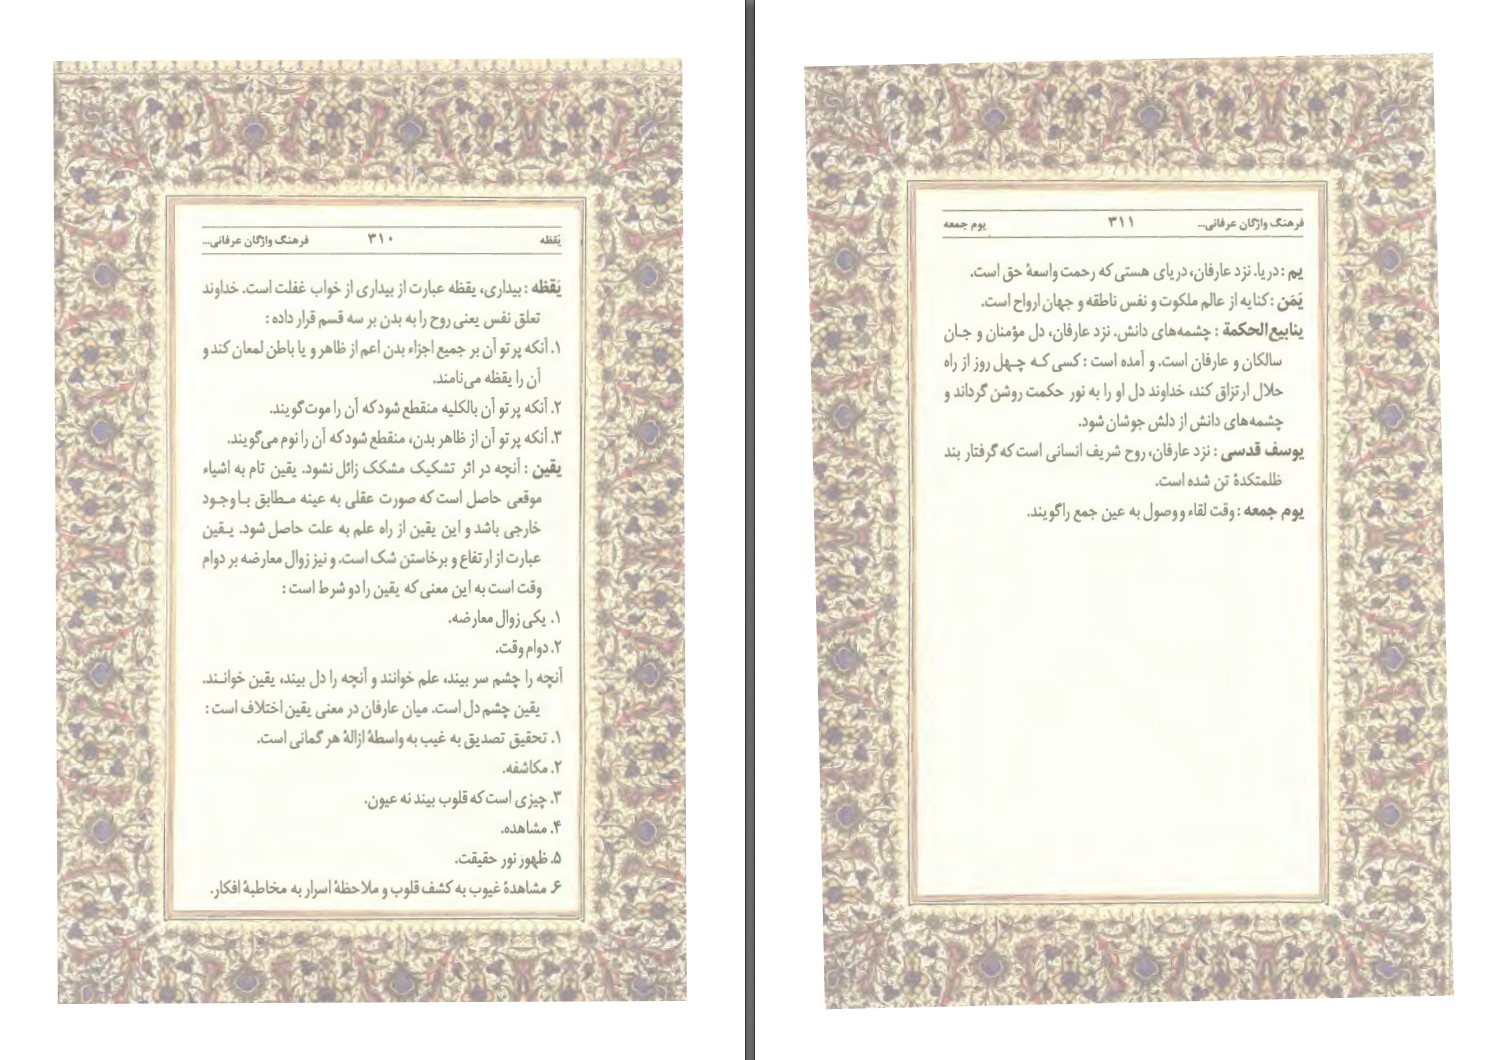 یَقظه ۳۱۰ فرهنگ واژگان عرفانی...
یَقظه : بیداری، یقظه عبارت از بیداری از خواب غفلت است. خداوند
تعلق نفس یعنی روح را به بدن بر سه قسم قرار داده :
۱. آنکه پرتو آن بر جمیع اجزاء بدن اعم از ظاهر و یا باطن لمعان کند و
آن را یقظه می‌نامند.
۲. آنکه پرتو آن بالکلیه منقطع شود که آن را موت گویند.
۳. آنکه پرتو آن از ظاهر بدن، منقطع شود که آن را نوم می‌گویند.
یقین : آنچه در اثر تشکیک مشکک زائل نشود. یقین تام به اشیاء
موقعی حاصل است که صورت عقلی به عینه مطابق با وجود
خارجی باشد و این یقین از راه علم به علت حاصل شود. یقین
عبارت از ارتفاع و برخاستن شک است. و نیز زوال معارضه بر دوام
وقت است به این معنی که یقین را دو شرط است :
۱. یکی زوال معارضه.
۲. دوام وقت.
آنچه را چشم سر بیند، علم خوانند و آنچه را دل بیند، یقین خوانند.
یقین چشم دل است. میان عارفان در معنی یقین اختلاف است :
۱. تحقیق تصدیق به غیب به واسطهٔ ازالهٔ هر گمانی است.
۲. مکاشفه.
۳. چیزی است که قلوب بیند نه عیون.
۴. مشاهده.
۵. ظهور نور حقیقت.
۶. مشاهدهٔ غیوب به کشف قلوب و ملاحظهٔ اسرار به مخاطبهٔ افکار.
فرهنگ واژگان عرفانی... ۳۱۱ یوم جمعه
یم : دریا. نزد عارفان، دریای هستی که رحمت واسعهٔ حق است.
یَمَن : کنایه از عالم ملکوت و نفس ناطقه و جهان ارواح است.
ینابیع‌الحکمة : چشمه‌های دانش. نزد عارفان، دل مؤمنان و جان
سالکان و عارفان است. و آمده است : کسی که چهل روز از راه
حلال ارتزاق کند، خداوند دل او را به نور حکمت روشن گرداند و
چشمه‌های دانش از دلش جوشان شود.
یوسف قدسی : نزد عارفان، روح شریف انسانی است که گرفتار بند
ظلمتکدهٔ تن شده است.
یوم جمعه : وقت لقاء و وصول به عین جمع را گویند.